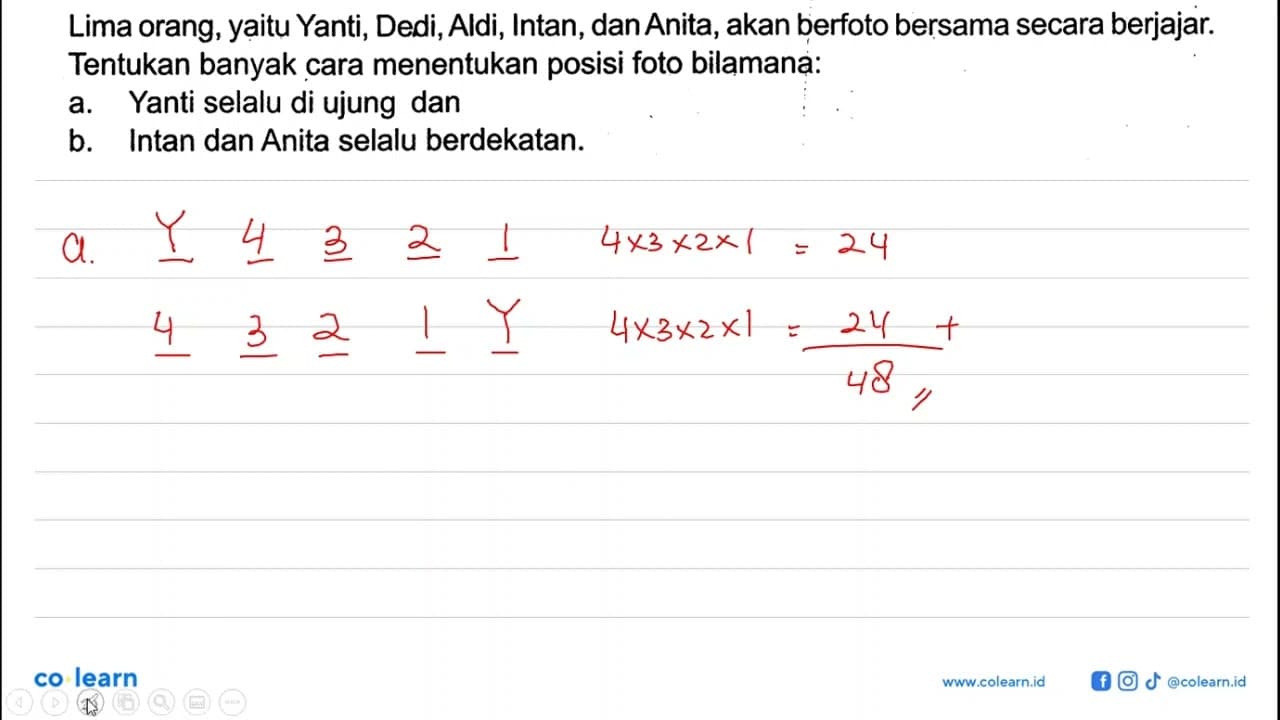 Lima orang, yaitu Yanti, Dedi, Aldi, Intan, dan Anita, akan berfoto bersama secara berjajar.
Tentukan banyak cara menentukan posisi foto bilamana:
a. Yanti selalu di ujung dan
b. Intan dan Anita selalu berdekatan.
a. Y 4 3 2 1 4x3x2x1 = 24
4 3 2 1 Y 4x3x2x1 = 24 +
48 //
co learn
www.colearn.id @colearn.id